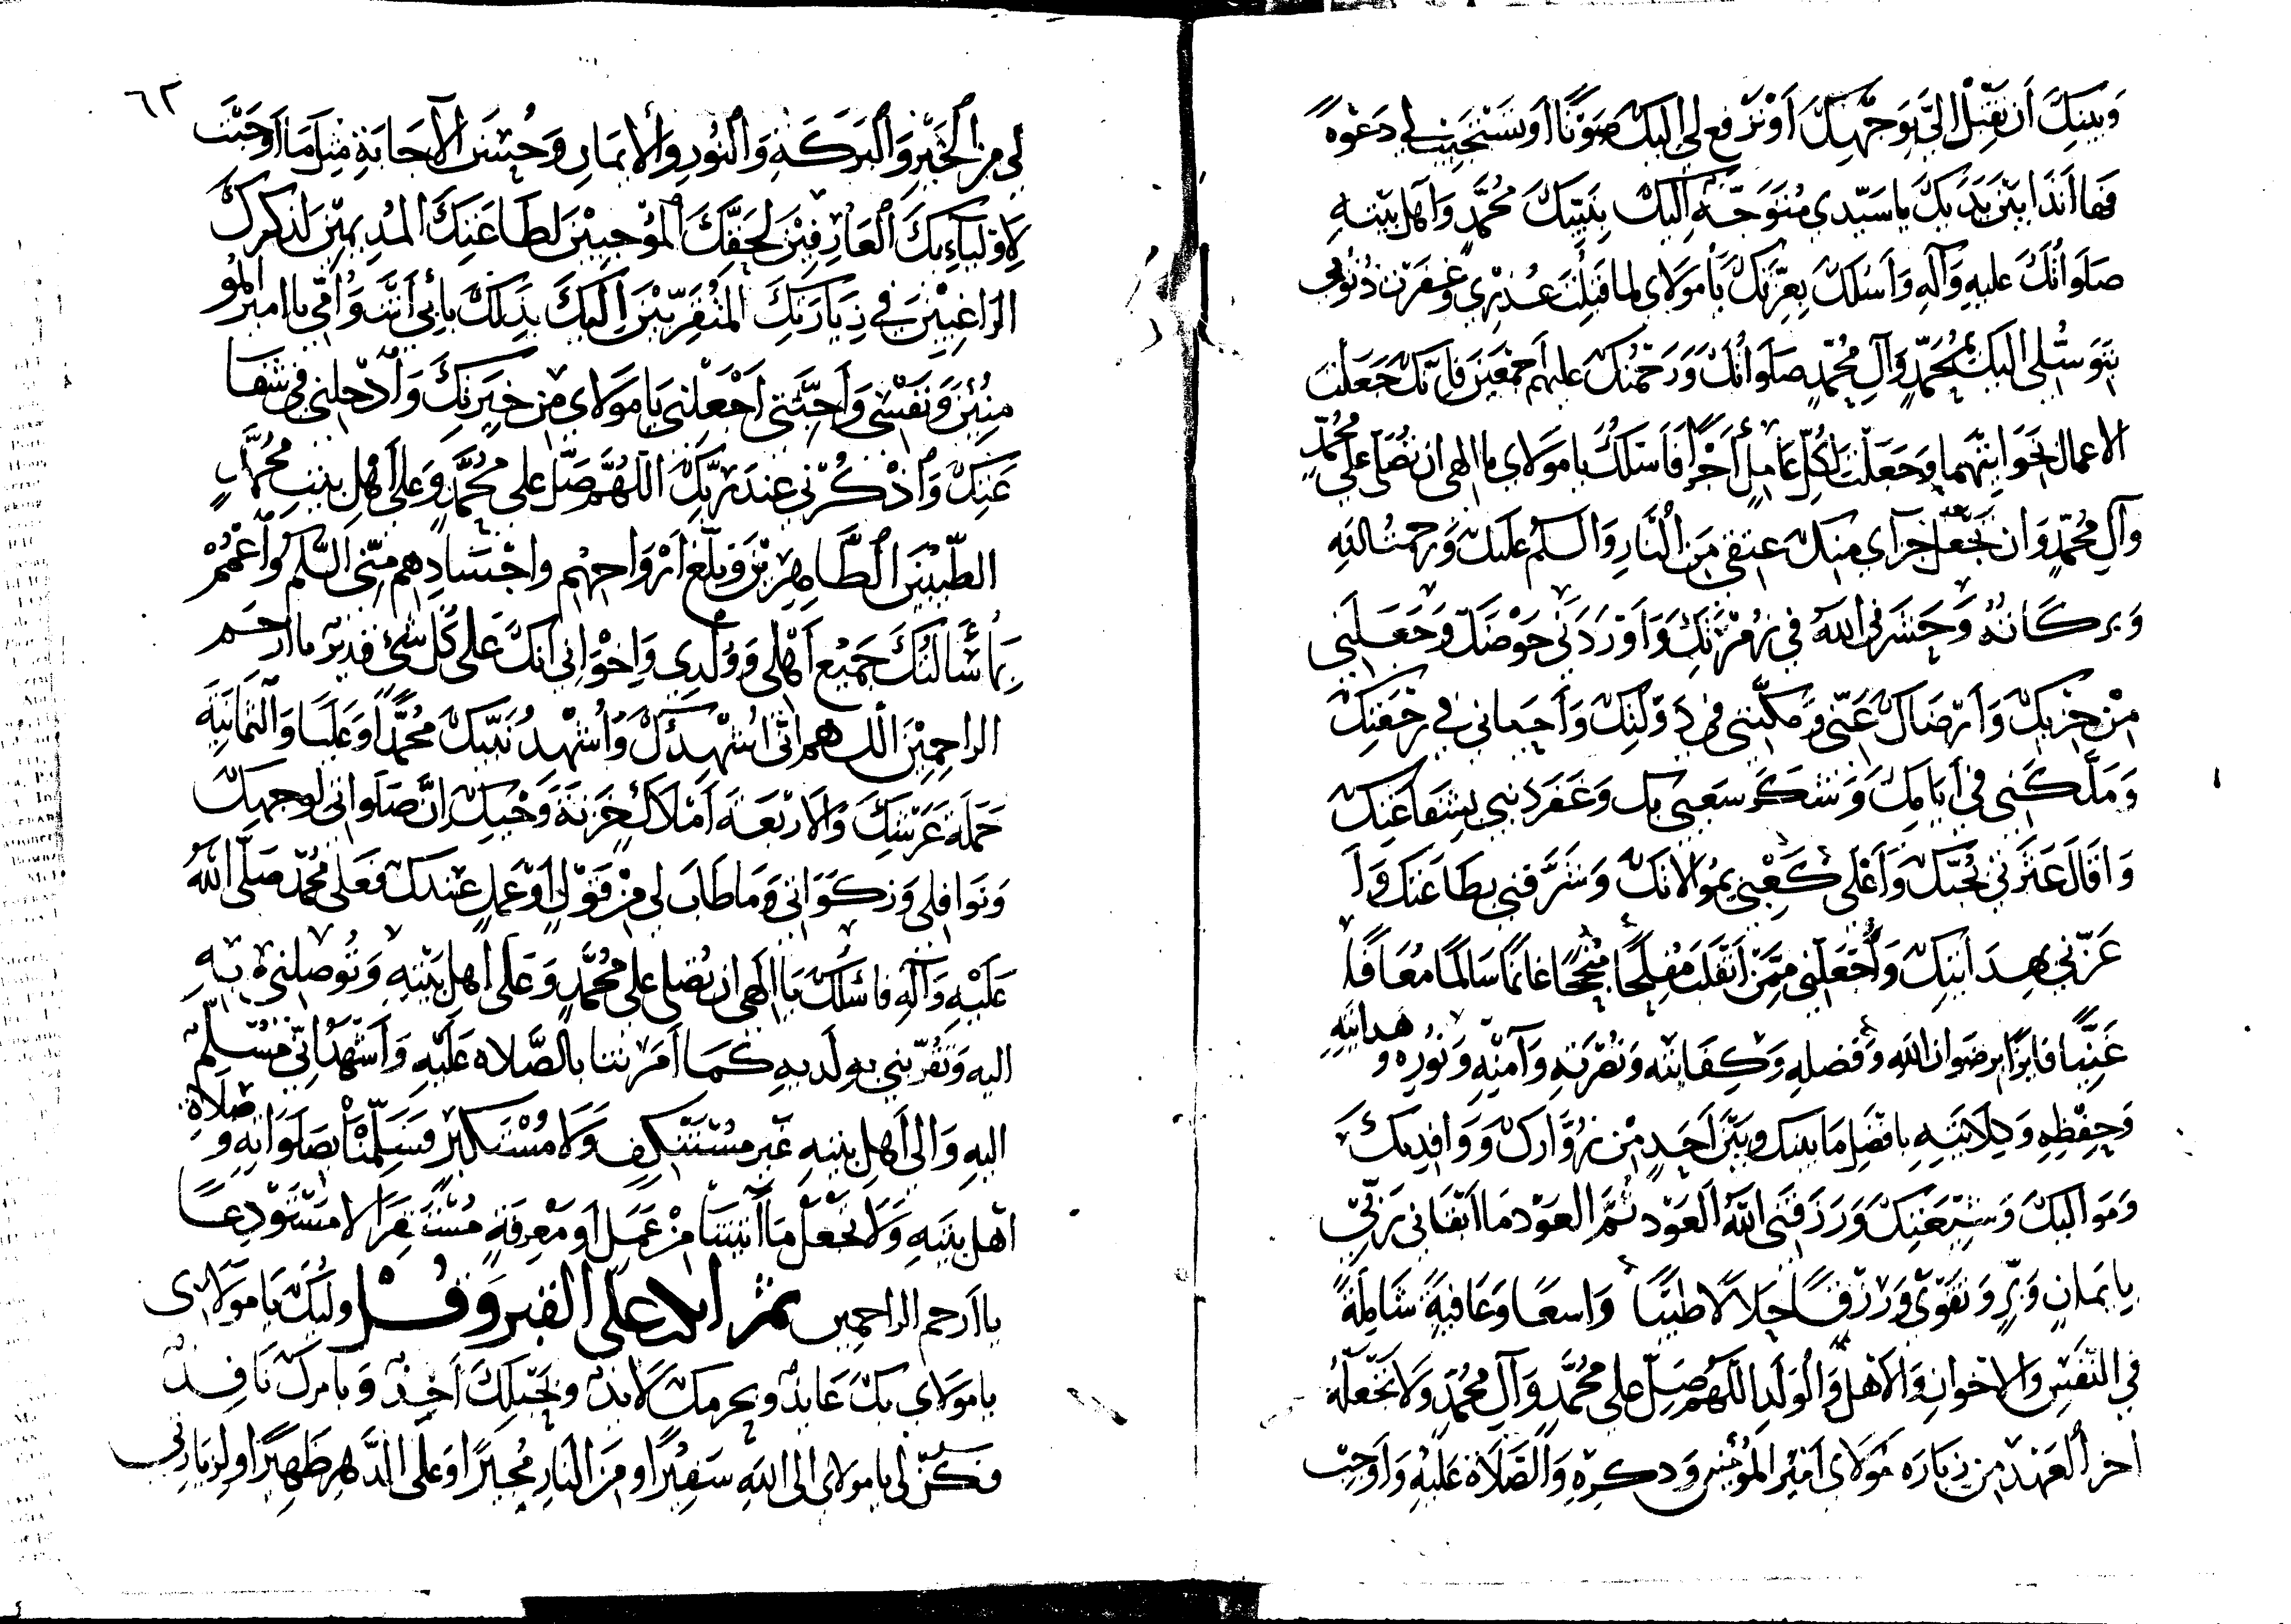 وَبَينِكَ أن تُقْبِلَ اليَّ بِوَجْهِكَ أَوْ تَرْفَع لي اليك صَوْتًا أو تَسْتَجيبَ لي دَعوهً
فَها انَذا بَيْنَ يَدَيكَ يا سَيّدي مُتَوَجّهٌ اِليكَ بِنَبيّكَ مُحَمَّدٍ وَاَهل بَيْتهِ
صَلَوَاتُكَ عليهِ وَآلهِ وَاَسئلكَ بِعِزّتِكَ يَا مَولاي لما قبِلْتَ عُذري وَغفَرتَ ذُنُوبي
بتَوَسّلي اليك بمُحَمّدٍ وَآلِ مُحَمّدٍ صَلَوَاتُكَ وَرَحمتُكَ عليهم أجمَعينَ فَاِنّكَ جَعَلتَ
الاعمال بخَوَاتِيمها وَجَعَلتَ لِكُلِّ عَامِلٍ أَجرًا فَاَسئَلكَ يا مَولاي يا الهي ان تُصَلّي على محُمّدٍ
وآلِ مُحَمّدٍ وَان تجْعَلَ جَزاي مِنكَ عِتقي مِن اَلنَّارِ وَالسَّلمُ عَليك وَرحمتُ اللهِ
وَبركاتُهُ وَحَشَرني اللهُ في زُمْرَتِكَ وَاَوْرَدَني حَوْضَكَ وَجَعَلَني
مِنْ حِزبِكَ وَاَرْضَاكَ عَنّي وَمَكّنَني في دَوْلَتِكَ وَأحياني في رَجْعَتِكَ
وَمَلّكَني في أيّامِكَ وَشَكَرَ سَعيي بِك وَغَفَر ذنبي بشَفاعَتِكَ
وَاَقَالَ عَثرَتي بحُبّكَ وَاَعْلى كَعْبي بمُوالاتكَ وَشَرَّفني بطَاعَتِكَ وَاَ
عَزّني بهِدَايَتِكَ وَاَجْعَلَني مِمّن اَنقَلَبَ مُفلِحًا مُنجِحًا غَانمًا سَالمًا مُعَافًا
غَنِيًّا فايزًا برِضوان الله وَفَضلهِ وَكِفَايَتِه وَنُصْرَتهِ وَآمنِهِ وَنُوره وَ هدايَتِهِ
وَحِفْظِهِ وَكِلاَيَتِهِ بافضَل مَا بينك وبَيْنَ أحَدٍ مِنْ زُوّاركَ وَوَافِديكَ
وَمَوَاليكَ وَشيعَتِكَ وَرَزَقَني اَللهُ اَلعَوْدَ ثُمَّ العَوْد مَا اَبقَاني رَبّي
بايمَانٍ وَبِّرٍ وَتَقوًى وَرزقًا حَلاَلاً طيِّبًا وَاسعًا وَعَافيَةً شَامِلَةً
في النَّفسِ وَالاخوان وَالاَهلِ وَالوَلَدِ اللّهُم صَلِّ على مُحَمَّدٍ وَآلِ محُمّدٍ وَلاَ تجْعلهُ
اخر العَهْد من زيَارَه مَولاي اَمير المُؤْمنين وَذِكرهِ وَالصَّلاة عَلَيْهِ وَاَوجِبْ
٦٢
لي مِن الخَيْرِ وَاَلبَرَكَةِ وَاَلنُورِ وَالأيمَانِ وَحُسْنَ الأجَابَةِ مِثْلَ مَا اَوجَبْتَ
لأوْليَاءِكَ العَارِفينَ بحَقِّكَ اَلمُوْجِبِيْنَ لطَاعَتِكَ المُدِيْمينَ لذكركَ
الرَاغِبينَ في زيَارَتِكَ المُتقَرِّبينَ اِليكَ بذلكَ بابي أَنتَ وَاُمّي يا امير المؤ
منينَ وَنَفْسي وَأحِبَّتي اَجْعَلني يَا مَوْلايَ من خيرَتِكَ وَاَدْخِلني في شفا
عَتِكَ وَاَذْكُرْني عِندَ رَبّكَ اَللّهُمَّ صَلِّ على مُحَمَّدٍ وَعَلى اَهْلِ بيتِ مُحَمَّدٍ
الطّيّبينَ اَلطَّاهِرِيْنَ وَبلّغْ اَرْوَاحهُم وَاَجْسَادهم مِنّي السَّلم وَاَعْمُمْ
بمَا سَألتُكَ جَميْع أَهْلي وَوُلْدي وَاِخْوَاني اِنّكَ عَلى كُلِّ شئٍ قديرٌ يا ارحَم
الراحِمينَ اللّهم اِنّي اُشْهدُكَ وَاُشْهدُ نَبيّكَ مُحَمَّدًا وَعَليًا وَالثمَانيَةَ
حَمَلَةَ عَرْشِكَ وَالاَرْبَعَةَ اَمْلاَكٍ خَزَنَةَ وَحْيِكَ اِنَّ صَلَواتي لوَجهِكَ
وَنَوَافلي وَزكَوَاتي وَمَا طَابَ لي مِنْ قَوْلٍ اَوْ عَمَلٍ عِندَكَ فعَلى مُحَمّد صَلّى اَللهُ
عَلَيْهِ وَآلِهِ فاسئَلُكَ يَا الهي ان تُصَلي على مُحَمَّدٍ وَعَلى اَهلِ بَيْتهِ وَتُوصِلني بِهِ
اليه وَتقرّبَني بهِ لَديهِ كَمَا اَمَرْتَنا بالصَّلاة عَلَيهِ وَأشهَدُ اَنّي مُسَلّمٌ
اليهِ وَالى اَهلِ بيتهِ غَير مُسْتَنْكِفٍ وَلاَ مُسْتَكبِرٍ فَسَلِّمْنَا بصَلَوَاتهِ وَ صَلاَةِ
اهْل بَيْتِهِ وَلاَ تجْعَلْ مَا أتيتنَا مِنْ عَمَلٍ اَو مَعْرِفَةٍ مُسْتَقَرًا لا مُسْتَوْدعًا
يا اَرحم الراحمين ثم انكب على القبر وقُل وليُّكَ يَا مَوْلاَى
يا مَوْلاي بكَ عَائذٌ وبحرمكَ لاَئذٌ وَبحَبلكَ آخِذٌ وَبامرك نَافِذٌ
فكُنْ لي يا مولاى الى اللهِ سَفِيرًا ومِنَ النَارِ مُجيرًا وَعلى الدَّهرِ ظَهِيرًا ولزيَارتي